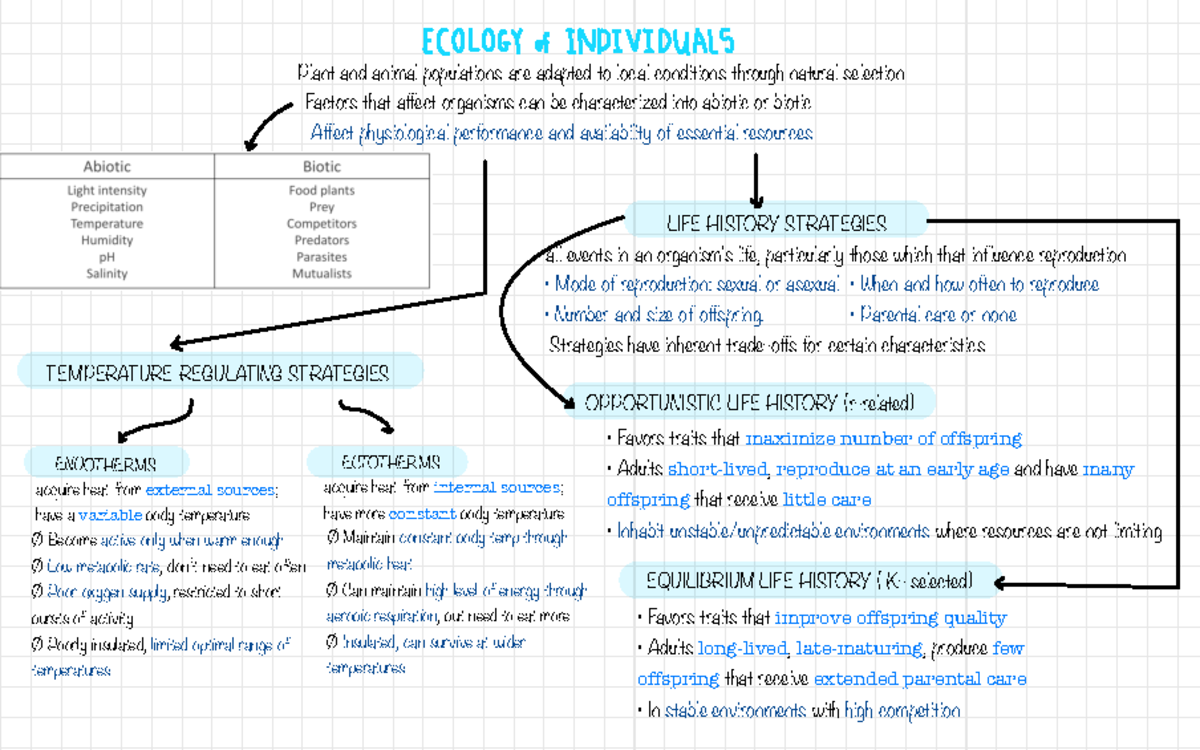 ECOLOGY of INDIVIDUALS
Plant and animal populations are adapted to local conditions through natural selection
Factors that affect organisms can be characterized into abiotic or biotic
Affect physiological performance and availability of essential resources
Abiotic
Light intensity
Precipitation
Temperature
Humidity
pH
Salinity
Biotic
Food plants
Prey
Competitors
Predators
Parasites
Mutualists
TEMPERATURE REGULATING STRATEGIES
ENDOTHERMS
acquire heat from external sources;
have a variable body temperature
Ø Become active only when warm enough
Ø Low metabolic rate, don't need to eat often
Ø Poor oxygen supply, restricted to short
bursts of activity
Ø Poorly insulated, limited optimal range of
temperatures
ECTOTHERMS
acquire heat from internal sources;
have more constant body temperature
Ø Maintain constant body temp through
metabolic heat
Ø Can maintain high level of energy through
aerobic respiration, but need to eat more
Ø Insulated, can survive at wider
temperatures
LIFE HISTORY STRATEGIES
all events in an organism's life, particularly those which that influence reproduction
• Mode of reproduction: sexual or asexual • When and how often to reproduce
• Number and size of offspring • Parental care or none
Strategies have inherent trade-offs for certain characteristics
OPPORTUNISTIC LIFE HISTORY (r-related)
• Favors traits that maximize number of offspring
• Adults short-lived, reproduce at an early age and have many
offspring that receive little care
• Inhabit unstable/unpredictable environments where resources are not limiting
EQUILIBRIUM LIFE HISTORY (K- selected)
• Favors traits that improve offspring quality
• Adults long-lived, late-maturing, produce few
offspring that receive extended parental care
• In stable environments with high competition